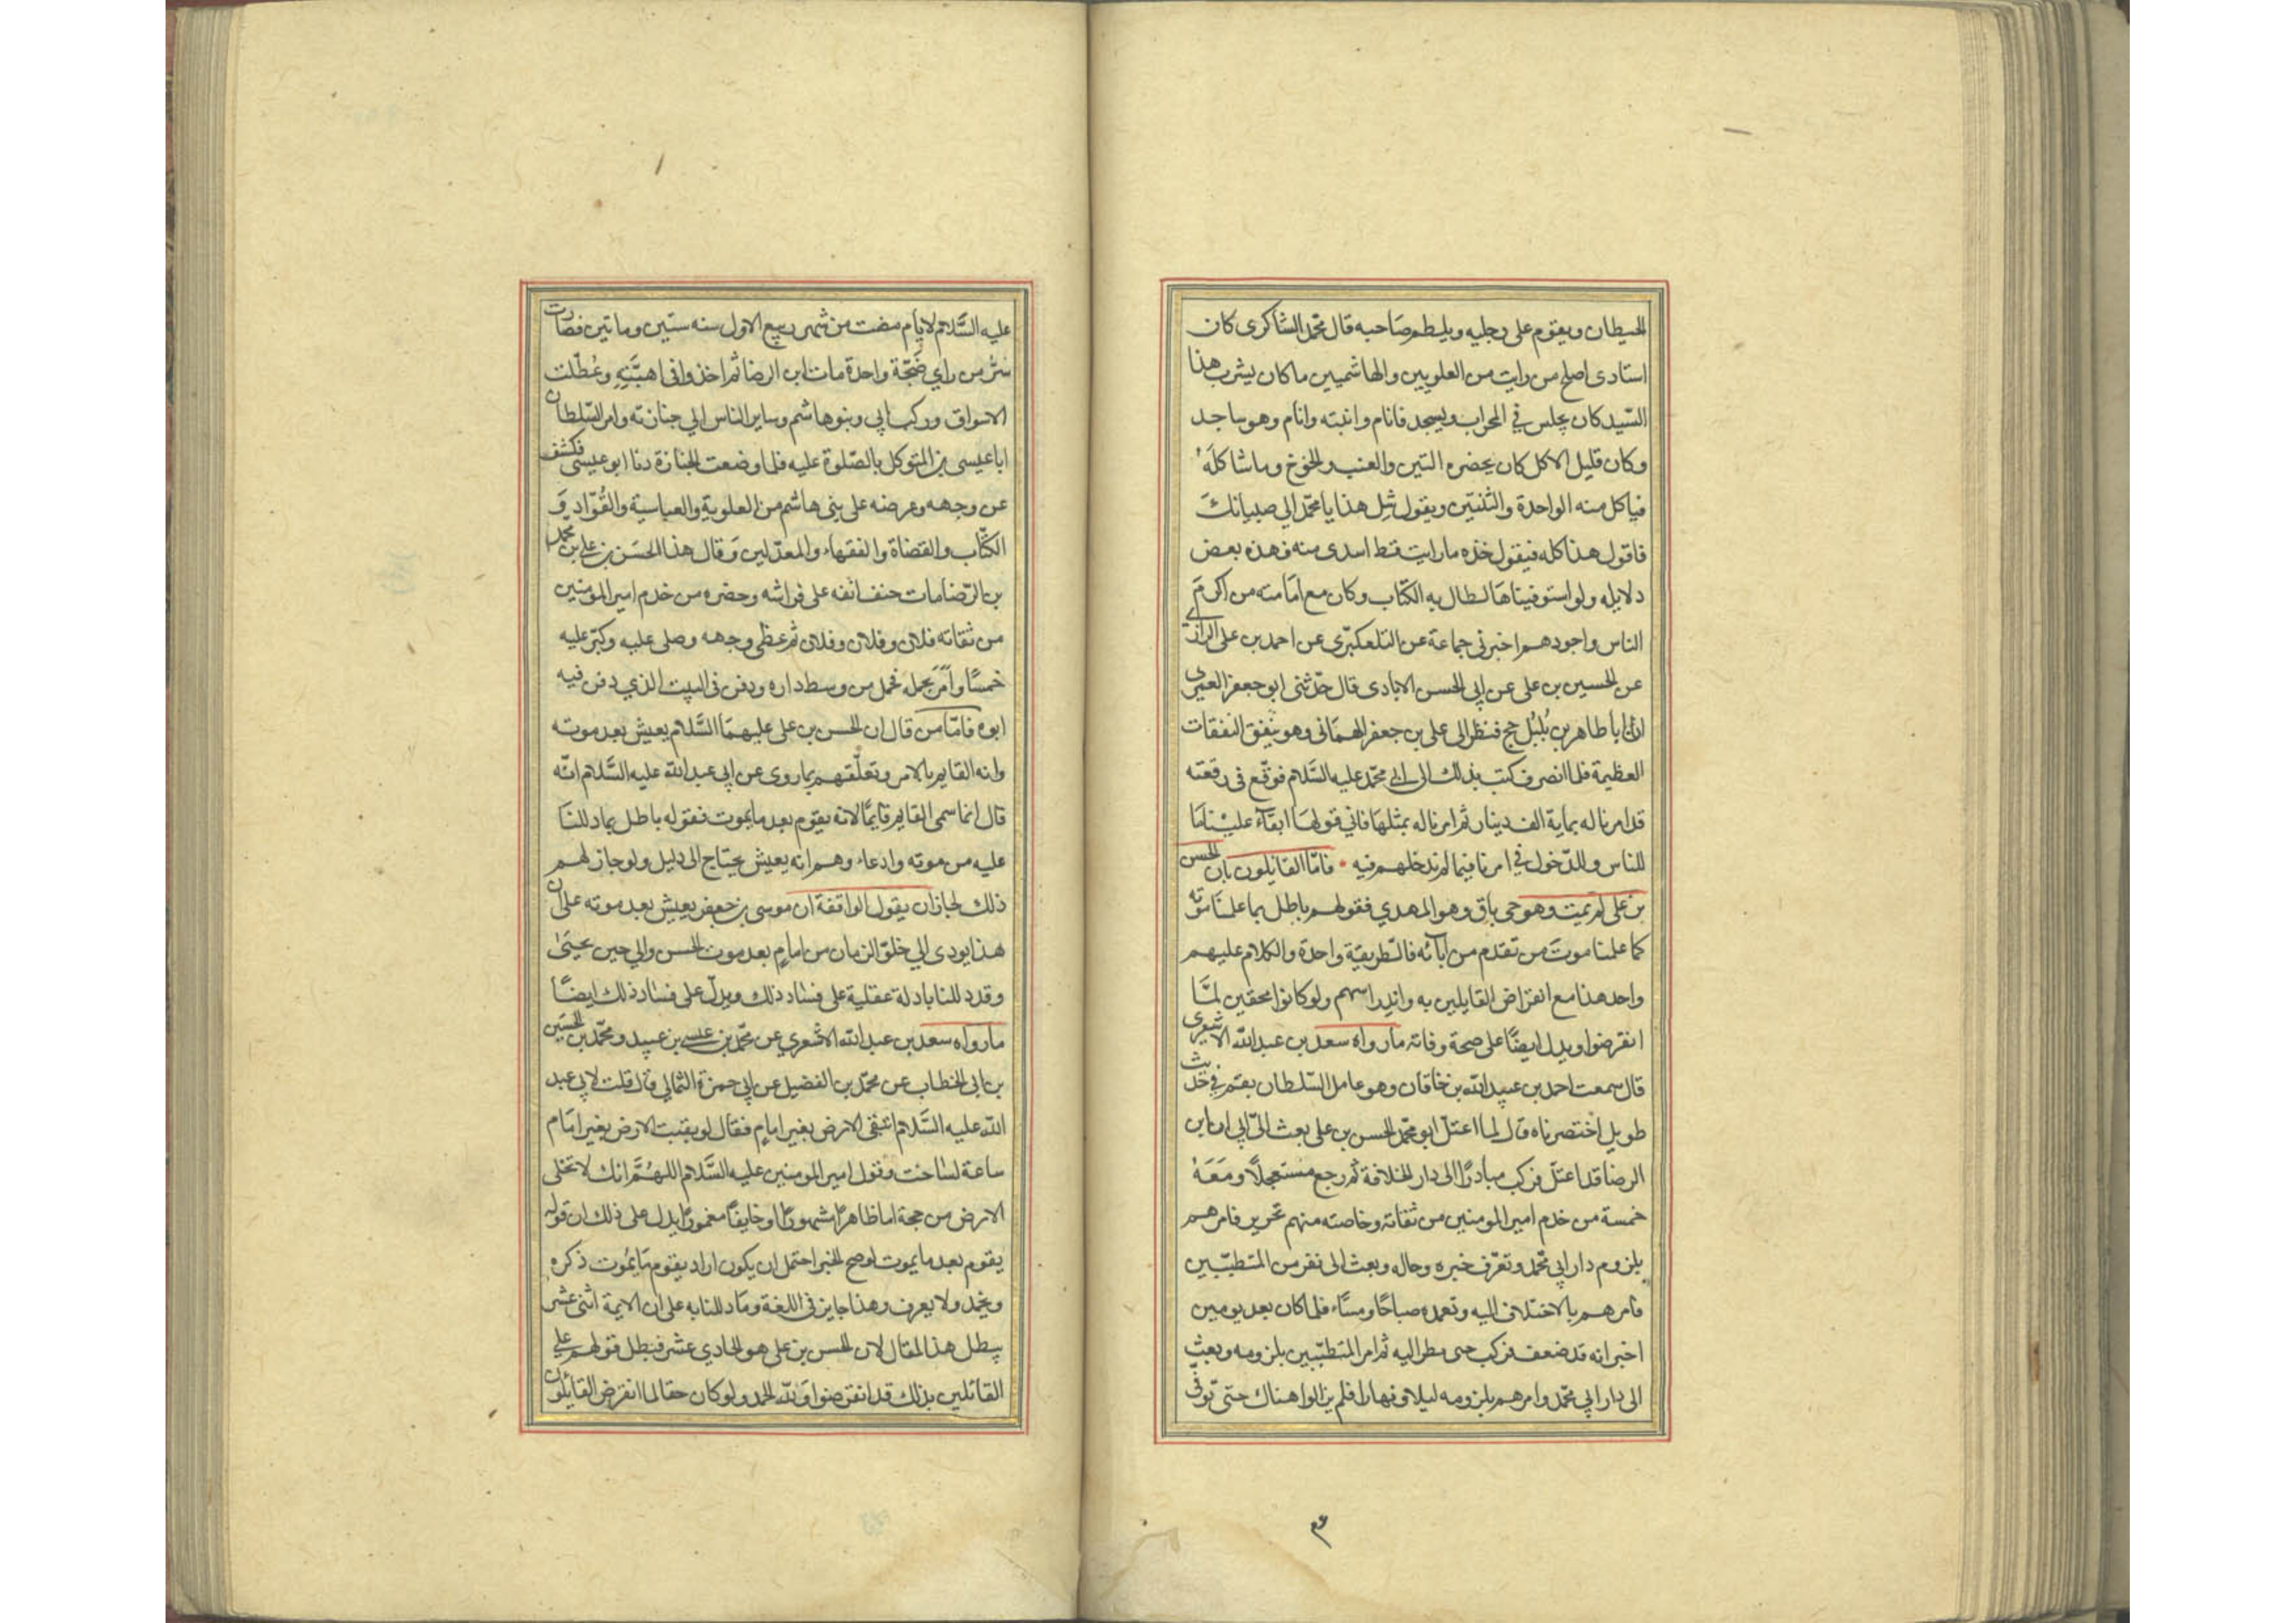 الحيطان ويقوم على رجليه ويلطم صاحبه قال محمد الشاكرى كان
استادى اصلح من رايت من العلويين والهاشميين ما كان يشرب هذا
السّيد كان يجلس في المحراب ويسجد فانام وانتبه وانام وهو ساجد
وكان قليل الاكل كان يحضره التين والعنب والخوخ وما شاكلَهُ
فياكل منه الواحدة والثنتين ويقول شِل هذا يا محمّد الي صبيانك
فاقول هذا كله فيقول خذه ما رايت قط اسدى منه فهذه بعض
دلايله ولو استوفيناها لطال به الكتاب وكان مع امامته من اكرمَ
الناس واجودهم اخبرنى جماعة عن التلعكبّرى عن احمد بن على الرازى
عن الحسين بن على عن ابي الحسن الايادى قال حدّثنى ابو جعفر العمرى
ان ابا طاهر بن بُلبُل حج فنظر الى على بن جعفر الهمانى وهو ينفق النفقات
العظيمة فلما انصرف كتب بذلك الى ابي محمّد عليه السَّلام فوقّع فى رقعته
قد امرنا له بماية الف دينار ثم امرنا له بمثلها فابي قبولها ابقآءً علينا مَا
للناس والدّخول في امرنا فيما لم ندخلهم فيه • فامّا القايلون بان الحسن
بن على لم يمت وهو حى باق وهو المهدي فقولهم باطل بما علمنا موته
كما علمنا موتَ من تقدم من آبائه فالطريقة واحدة والكلام عليهم
واحد هذا مع انقراض القايلين به واندِراسهم ولو كانوا محقين لمَّا
انقرضوا ويدل ايضًا على صحة وفاته ما رواه سعد بن عبد الله الاشعرى
قال سمعت احمد بن عبيد الله بن خاقان وهو عامل السّلطان بقم في حديث
طويل اختصرناه قال لما اعتلّ ابو محمّد الحسن بن على بعث الىّ ابي ان ابن
الرضا قد اعتلّ فركب مبادرًا الى دار الخلافة ثم رجع مستعجلًا ومَعَهُ
خمسة من خدم امير المومنين من ثقاته وخاصته منهم نحرير فامرهم
بلزوم دار ابي محمّد وتعرّف خبره وحاله وبعث الى نفر من المتطبّبين
فامرهم بالاختلاف اليه وتعهده صباحًا ومساء فلما كان بعد يومين
اخبر انه قد ضعف فركب حتى نظر اليه ثم امر المتطبّبين بلزومه وبعث
الى دار ابي محمّد وامرهم بلزومه ليلا ونهارا فلم يزالوا هناك حتى توفّى
عليه السَّلام لايام مضت من شهر ربيع الاول سنه ستين وماتين فصارت
سُرَّ من راي ضَجّة واحدة مات ابن الرضا ثم اخذوا فى اهبَّتِه وعُطّلت
الاسواق وركب ابي وبنو هاشم وساير الناس الي جنازته وامر السّلطان
ابا عيسى بن المتوكل بالصّلوة عليه فلما وضعت الجنازة دنا ابو عيسى فكشف
عن وجهه وعرضه على بني هاشم من العلوية والعباسية والقُوّاد وَ
الكتّاب والقضاة والفقهاء والمعدّلين وَقال هذا الحسَن بن على بن محمد
بن الرّضا مات حتف انفه على فراشه وحضره من خدم امير المومنين
من ثقاته فلان وفلان وفلان ثم غطى وجهه وصلى عليه وكبّر عليه
خمسًا وامَرَ بحمله فحمل من وسط داره ودفن فى البيت الذي دفن فيه
ابوه فامّا من قال ان الحسن بن على عليهمَا السَّلام يعيش بعد موته
وانه القايم بالامر وتعلّقهم بما روى عن ابي عبد الله عليه السَّلام انّه
قال انما سمى القايم قايمًا لانه يقوم بعد ما يموت فقوله باطل بما دللنا
عليه من موته وادعاء وهم انه يعيش يحتاج الى دليل ولو جاز لهم
ذلك لجاز ان يقول الواقفة ان موسى بن جعفر يعيش بعد موته على ان
هذا يودى الي خلوّ الزمان من امامٍ بعد موت الحسن والي حين يحيَىٰ
وقد دللنا بادلة عقلية على فساد ذلك ويدلّ على فساد ذلك ايضًا
ما رواه سعد بن عبد الله الاشعري عن محمّد بن عيسى بن عبيد ومحمّد بن الحسَين
بن ابى الخطاب عن محمّد بن الفضيل عن ابي حمزة الثمالي قال قلت لابي عبد
الله عليه السَّلام اتبقى الارض بغير امامٍ فقال لو بقيت الارض بغير امَام
ساعة لساخت وقول امير المومنين عليه السَّلام اللهُمَّ انك لا تخلى
الارض من حجة اما ظاهرًا مشهورًا او خايفًا مغمورًا يدل على ذلك ان قوله
يقوم بعد ما يموت لو صح الخبر احتمل ان يكون اراد يقوم مَا يمُوت ذكره
ويخمل ولا يعرف وهذا جايز فى اللغة ومَا دللنا به على ان الايمة اثنى عشر
يبطل هذا المقال لان الحسن بن على هو الحادي عشر فبطل قولهم على
القائلين بذلك قد انقرضوا وَلله الحمد ولو كان حقا لما انقرض القائلون